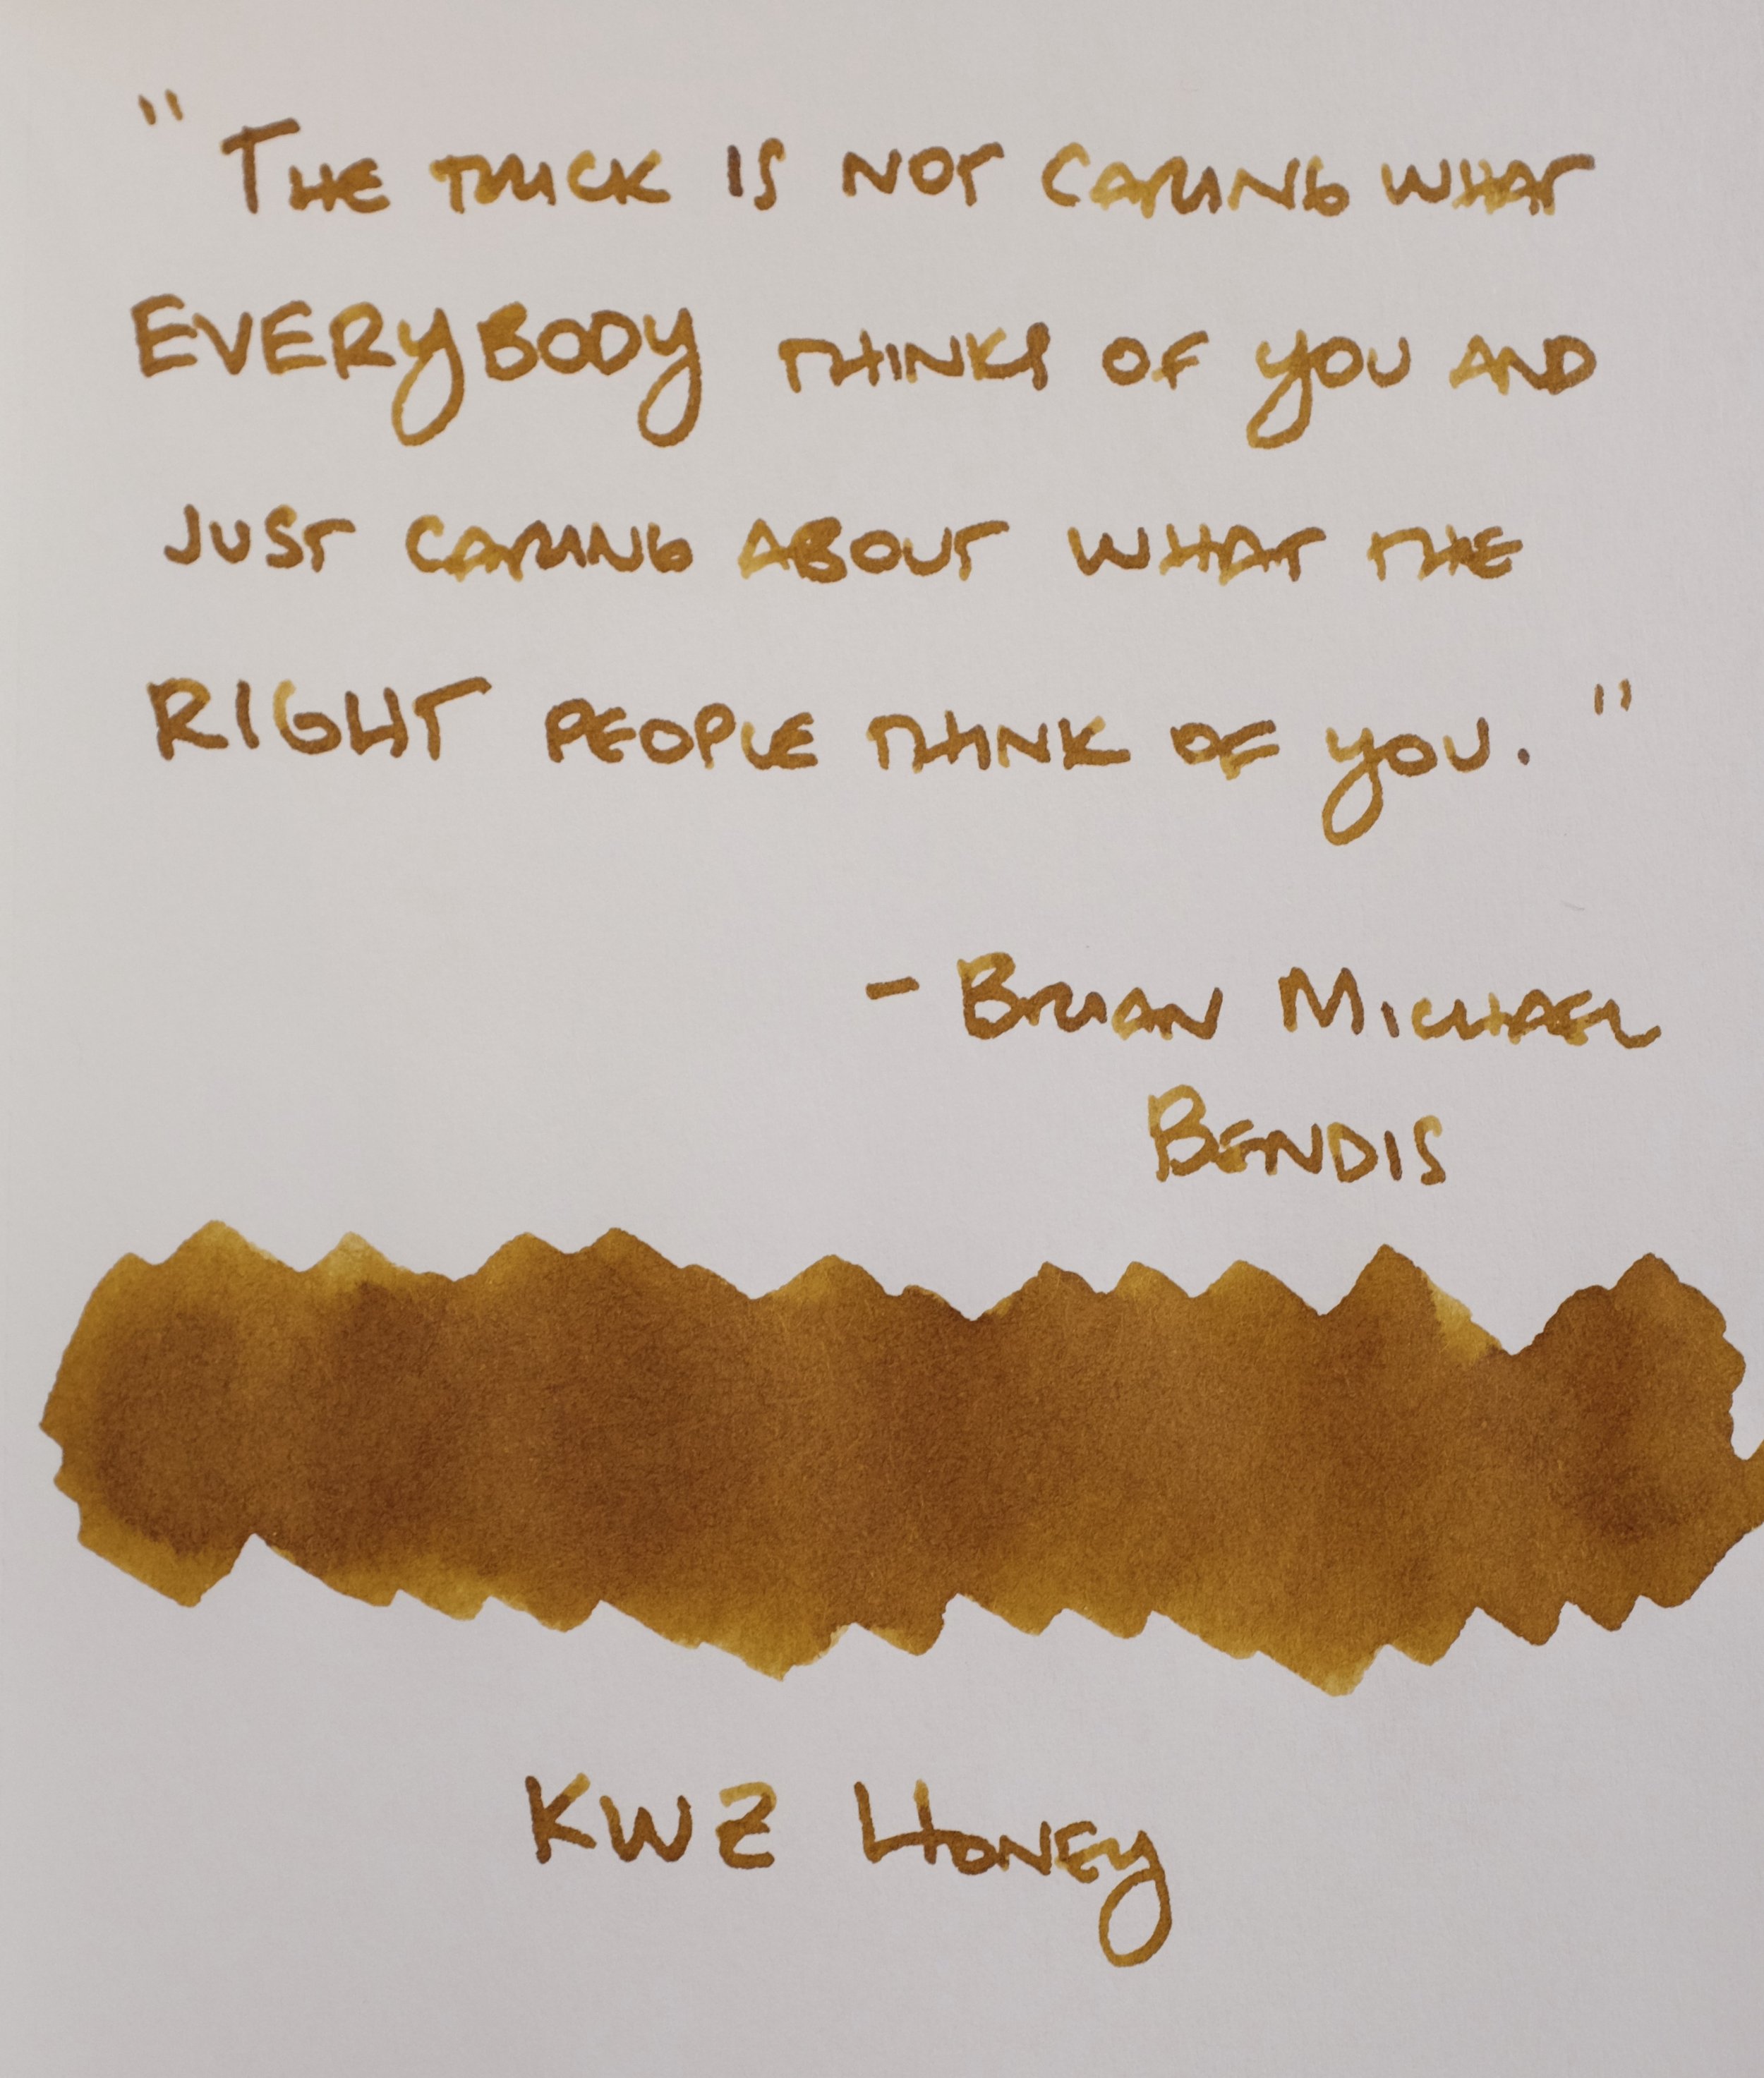 "The trick is not caring what
EVERYBODY thinks of you and
just caring about what the
RIGHT people think of you."
- Brian Michael
Bendis
KWZ Honey